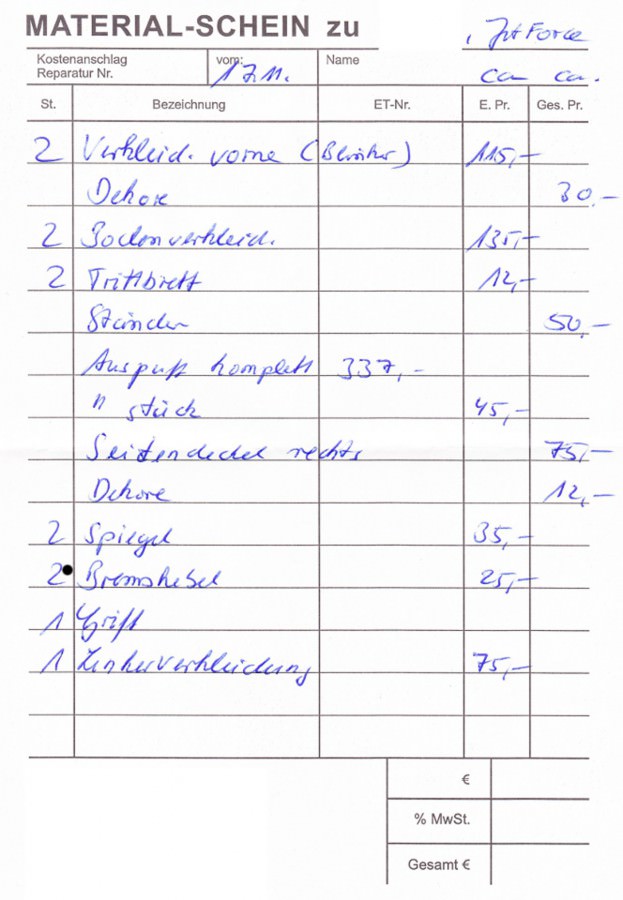 MATERIAL-SCHEIN zu
, Jet Force
Kostenanschlag
Reparatur Nr.
vom: 17.11.
Name
ca ca.
St. Bezeichnung ET-Nr. E. Pr. Ges. Pr.
2 Verkleid. vorne (Blinker) 115,-
Dekore 30.-
2 Bodenverkleid. 135,-
2 Trittbrett 12,-
Ständer 50,-
Auspuff komplett 337,-
" stück 45,-
Seitendeckel rechts 75,-
Dekore 12,-
2 Spiegel 35,-
2 Bremshebel 25,-
1 Griff
1 Lenkerverkleidung 75,-
€
% MwSt.
Gesamt €